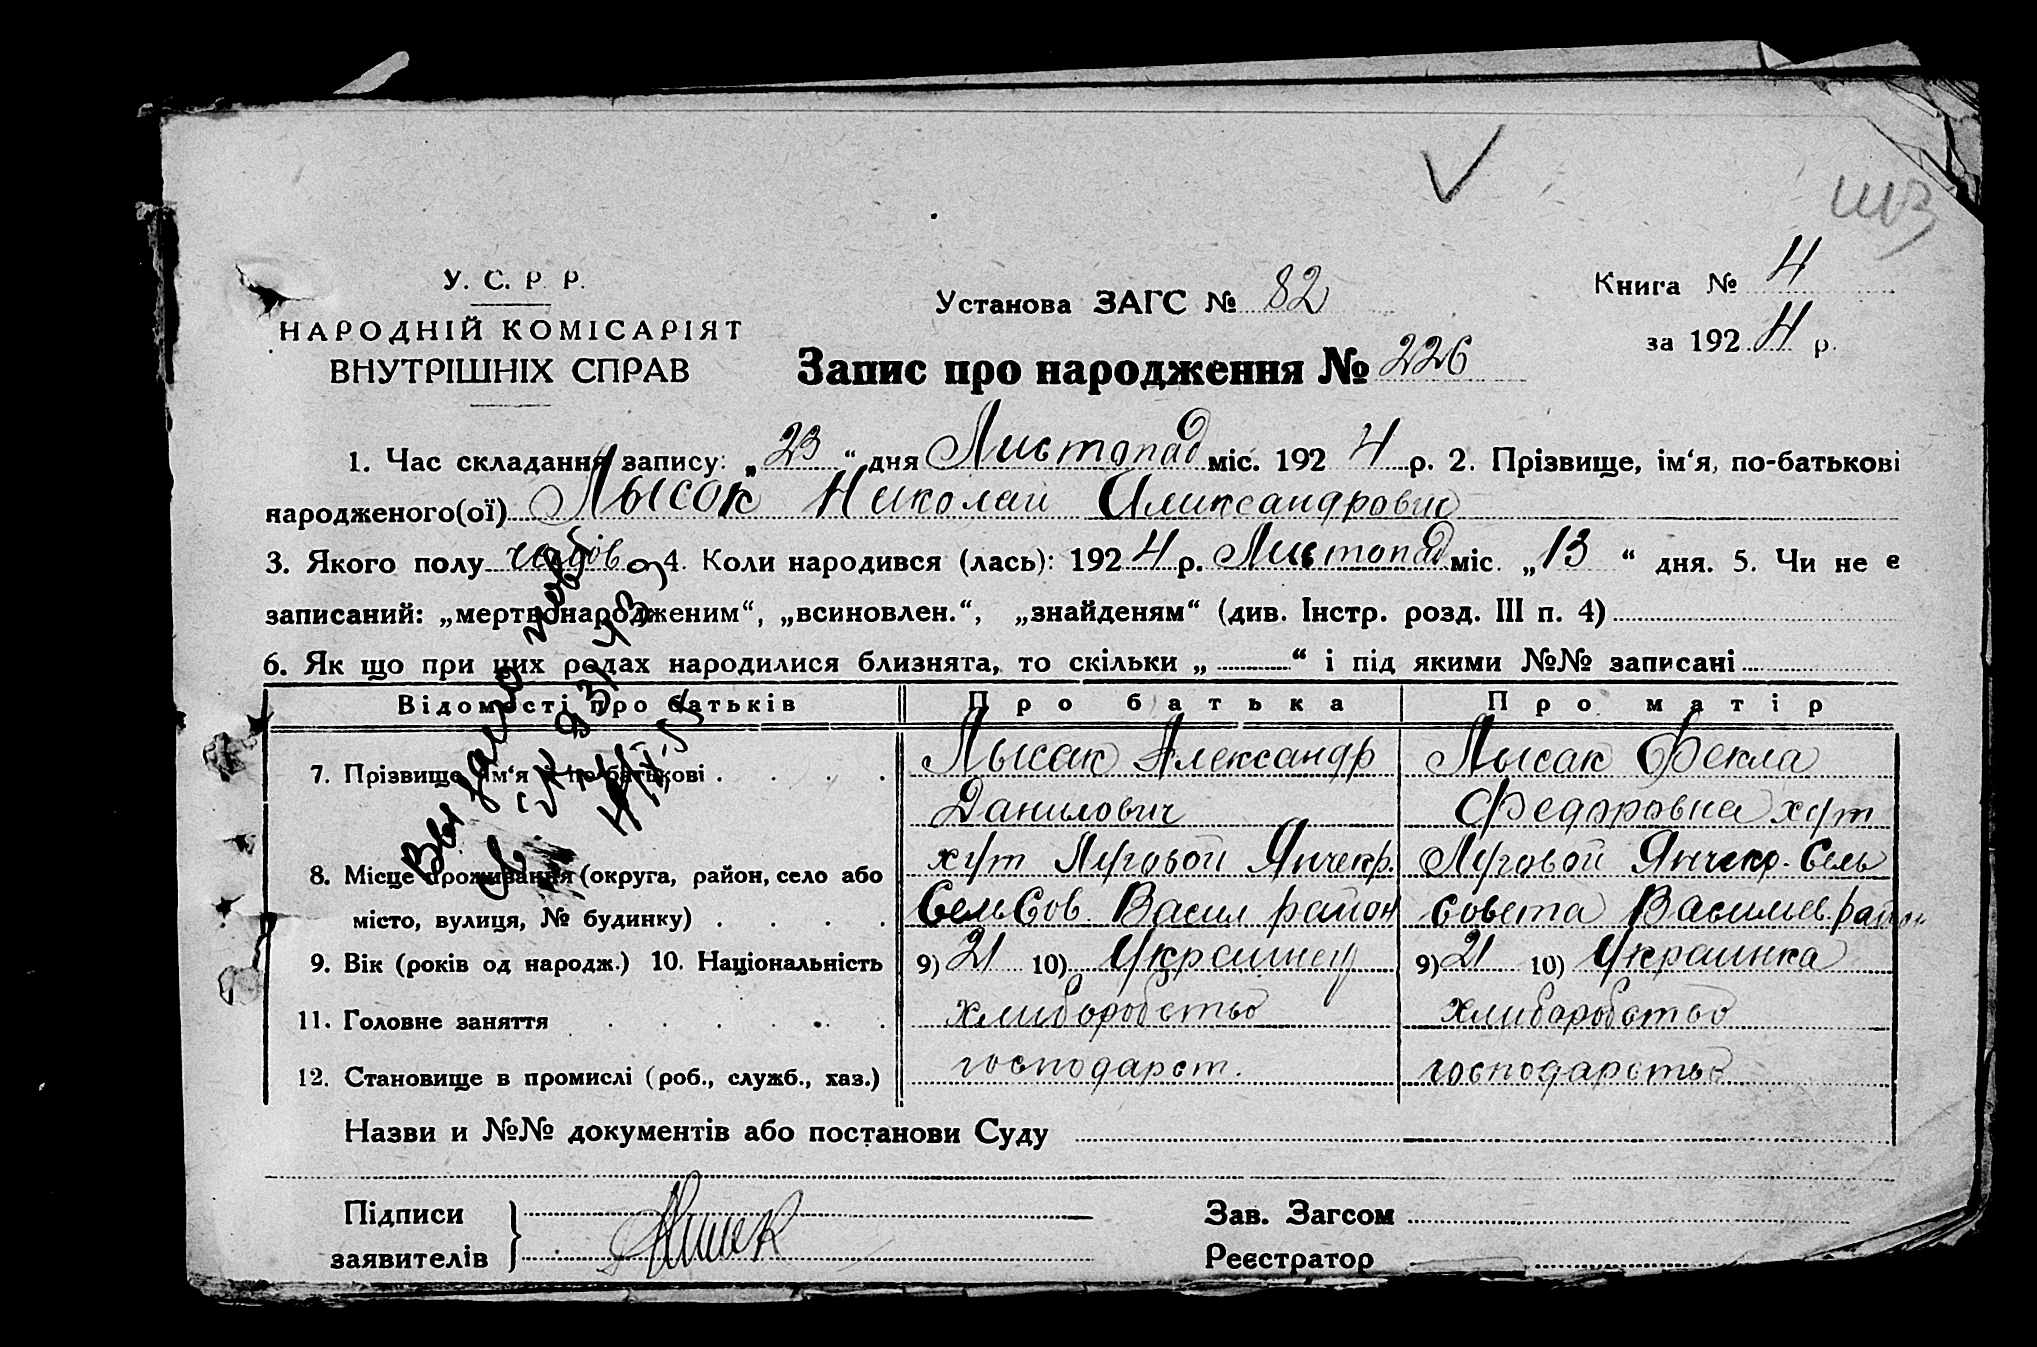 У. С. Р. Р.
НАРОДНІЙ КОМІСАРІЯТ
ВНУТРІШНІХ СПРАВ
Установа ЗАГС № 82
Книга № 4
за 1924 р.
Запис про народження № 226
1. Час складання запису: „23“ дня Листопад міс. 1924 р. 2. Прізвище, ім‘я, по-батькові
народженого(ої) Лысак Николай Александрович
3. Якого полу 4. Коли народився (лась): 1924 р. Листопад міс. „13“ дня. 5. Чи не є
записаний: „мертвонародженим“, „всиновлен.“, „знайденям“ (див. Інстр. розд. III п. 4)
6. Як що при цих родах народилися близнята, то скільки „ “ і під якими №№ записані
Відомості про батьків Про батька Про матір
7. Прізвище, ім‘я і по-батькові
Лысак Александр
Данилович
Лысак Фекла
Федоровна хут
8. Місце проживання (округа, район, село або
місто, вулиця, № будинку)
хут Луговой Янчекр.
СельСов. Васил район
Луговой Янчекр. Сель
совета Васильев. район
9. Вік (років од народж.) 10. Національність 9) 21 10) Украинец 9) 21 10) Украинка
11. Головне заняття хлиборобство хлиборобство
12. Становище в промислі (роб., служб., хаз.) господарст. господарство
Назви и №№ документів або постанови Суду
Підписи
заявителів
Зав. Загсом
Реєстратор